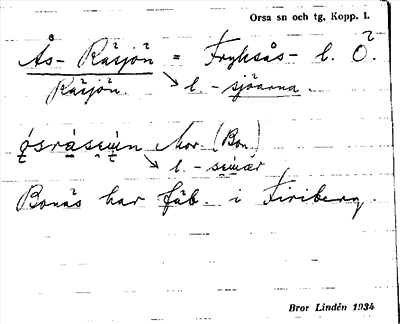 Orsa sn och tg, Kopp. l.
Ås- Råsjön = Fryksås- l. Ö.
Råsjön. l. -sjöarna.
Mor. (Bon.)
l. -
Bonäs har fäb. i Firiberg.
Bror Lindén 1934